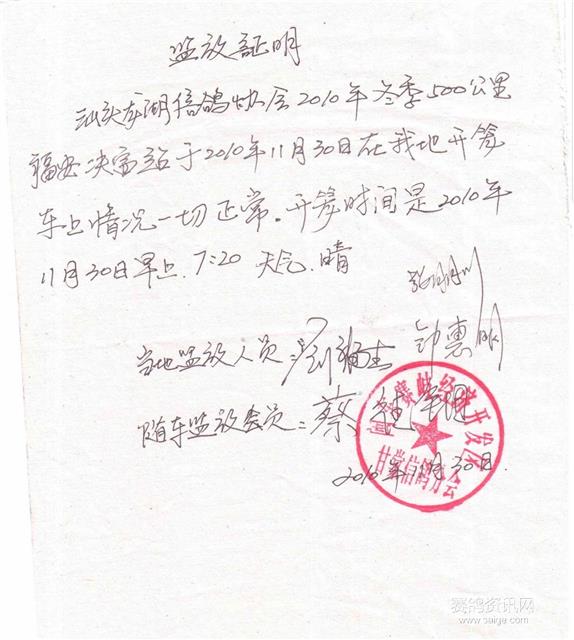 监放証明
汕头龙湖信鸽协会2010年冬季500公里
福安决赛站于2010年11月30日在我地开笼
车上情况一切正常。开笼时间是2010年
11月30日早上.7:20 天气.晴
当地监放人员:刘福生 钟惠明
随车监放会员:蔡
赛岐经济开发区
甘棠信鸽分会
2010年11月30日.
赛鸽资讯网
www.saige.com